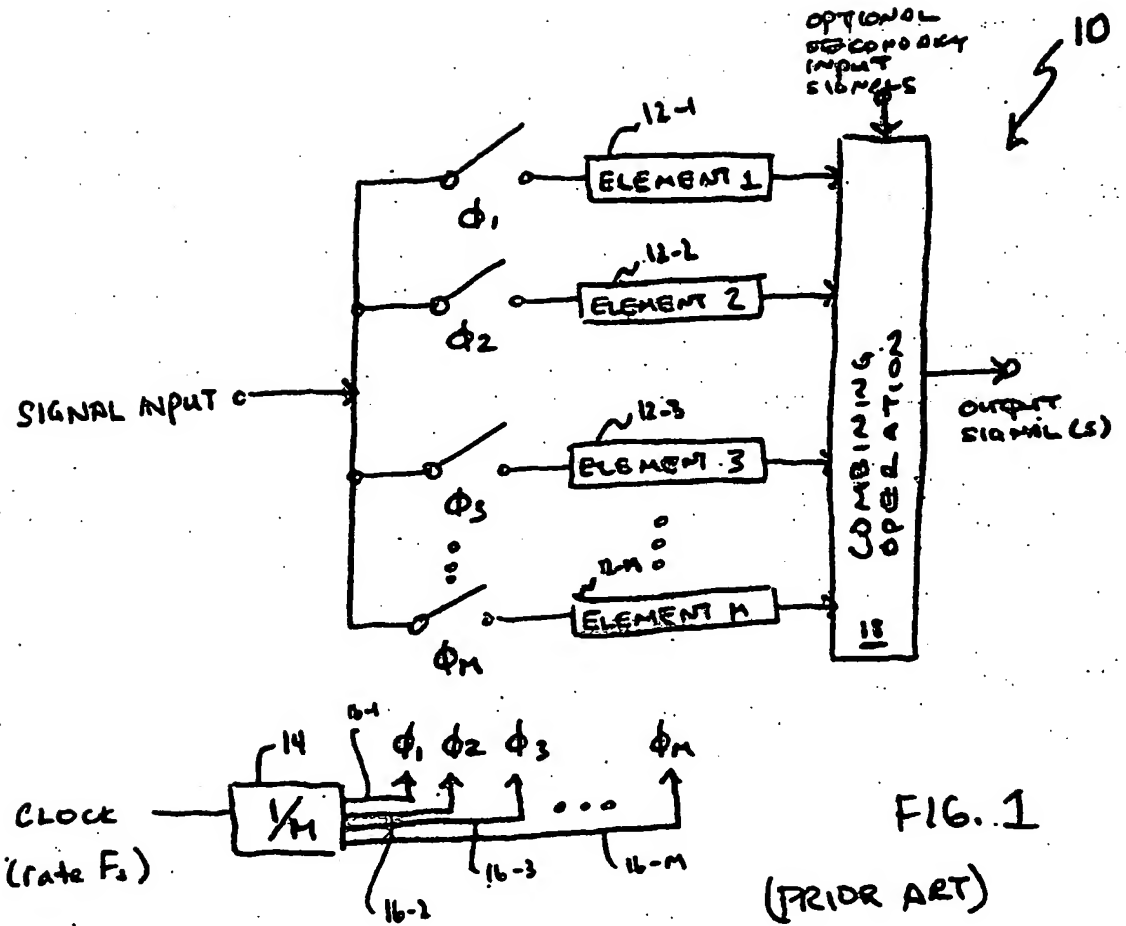 OPTIONAL
SECONDARY
INPUT
SIGNALS
10
12-1
ELEMENT 1
ϕ1
12-2
ELEMENT 2
ϕ2
SIGNAL INPUT
12-3
ELEMENT 3
ϕ3
12-M
ELEMENT M
ϕM
COMBINING
OPERATION
18
OUTPUT
SIGNAL(S)
14
16-1
ϕ1 ϕ2 ϕ3 ϕM
CLOCK
(rate Fs)
1/M
16-2
16-3
16-M
FIG. 1
(PRIOR ART)